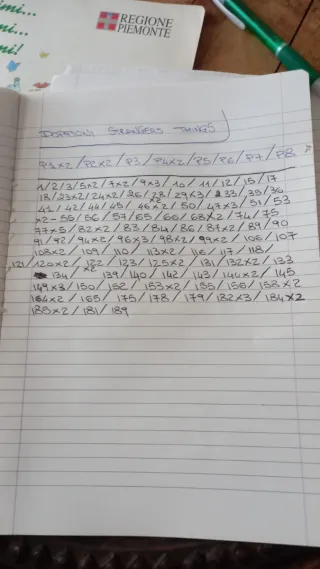 imi...
ni...
mi!
REGIONE
PIEMONTE
DOPPIONI STRANGERS THINGS
P1x2/P2x2/P3/P4x2/P5/P6/P7/P8
1/2/3/5x2/7x2/9x3/10/11/12/15/17
18/23x2/24x2/26/28/29x3/33/35/36
x2
41/42/44/45/46x2/50/47x3/51/53
x2-55/56/57/65/66/68x2/74/75
77x5/82x2/83/84/86/87x2/89/90
91/92/94x2/96x3/98x2/99x2/106/107
108x2/109/110/113x2/116/117/118/
121/120x2/122/123/125x2/131/132x2/133
134/x2 139/140/142/143/144x2/145
149x3/150/152/153x2/155/156/158x2
164x2/165/175/178/179/182x3/184x2
188x2/181/189